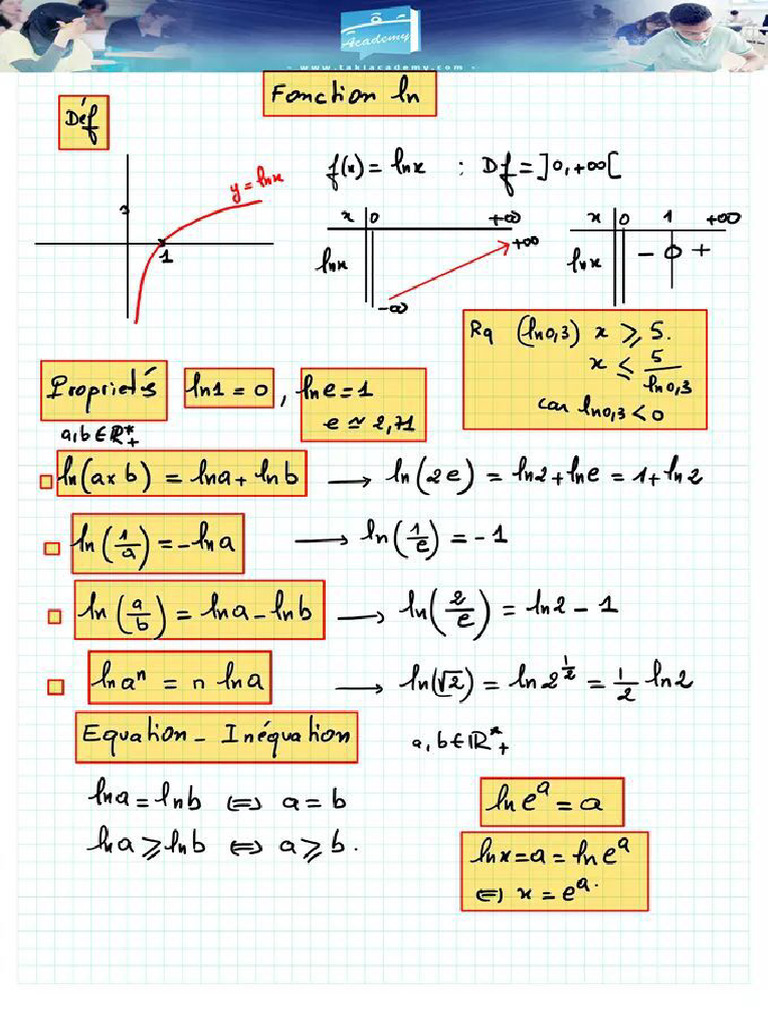 Academy
- www.takiacademy.com -
Fonction ln
Déf
y = lnx
1
f(x) = lnx : Df = ]0, +∞[
x 0 +∞
lnx -∞ +∞
x 0 1 +∞
lnx - 0 +
Rq (ln0,3) x ⩾ 5.
x ≤ 5/ln0,3
car ln0,3 < 0
Propriétés ln1 = 0 , lne = 1
e ≃ 2,71
a,b ∈ ℝ*₊
ln(a×b) = lna + lnb → ln(2e) = ln2 + lne = 1 + ln2
ln(1/a) = -lna → ln(1/e) = -1
ln(a/b) = lna - lnb → ln(2/e) = ln2 - 1
lnaⁿ = n lna → ln(√2) = ln2^(1/2) = 1/2 ln2
Equation - Inéquation
a,b ∈ ℝ*₊
lna = lnb ⇔ a = b
lna ⩾ lnb ⇔ a ⩾ b.
lneᵃ = a
lnx = a = lneᵃ
⇔ x = eᵃ.